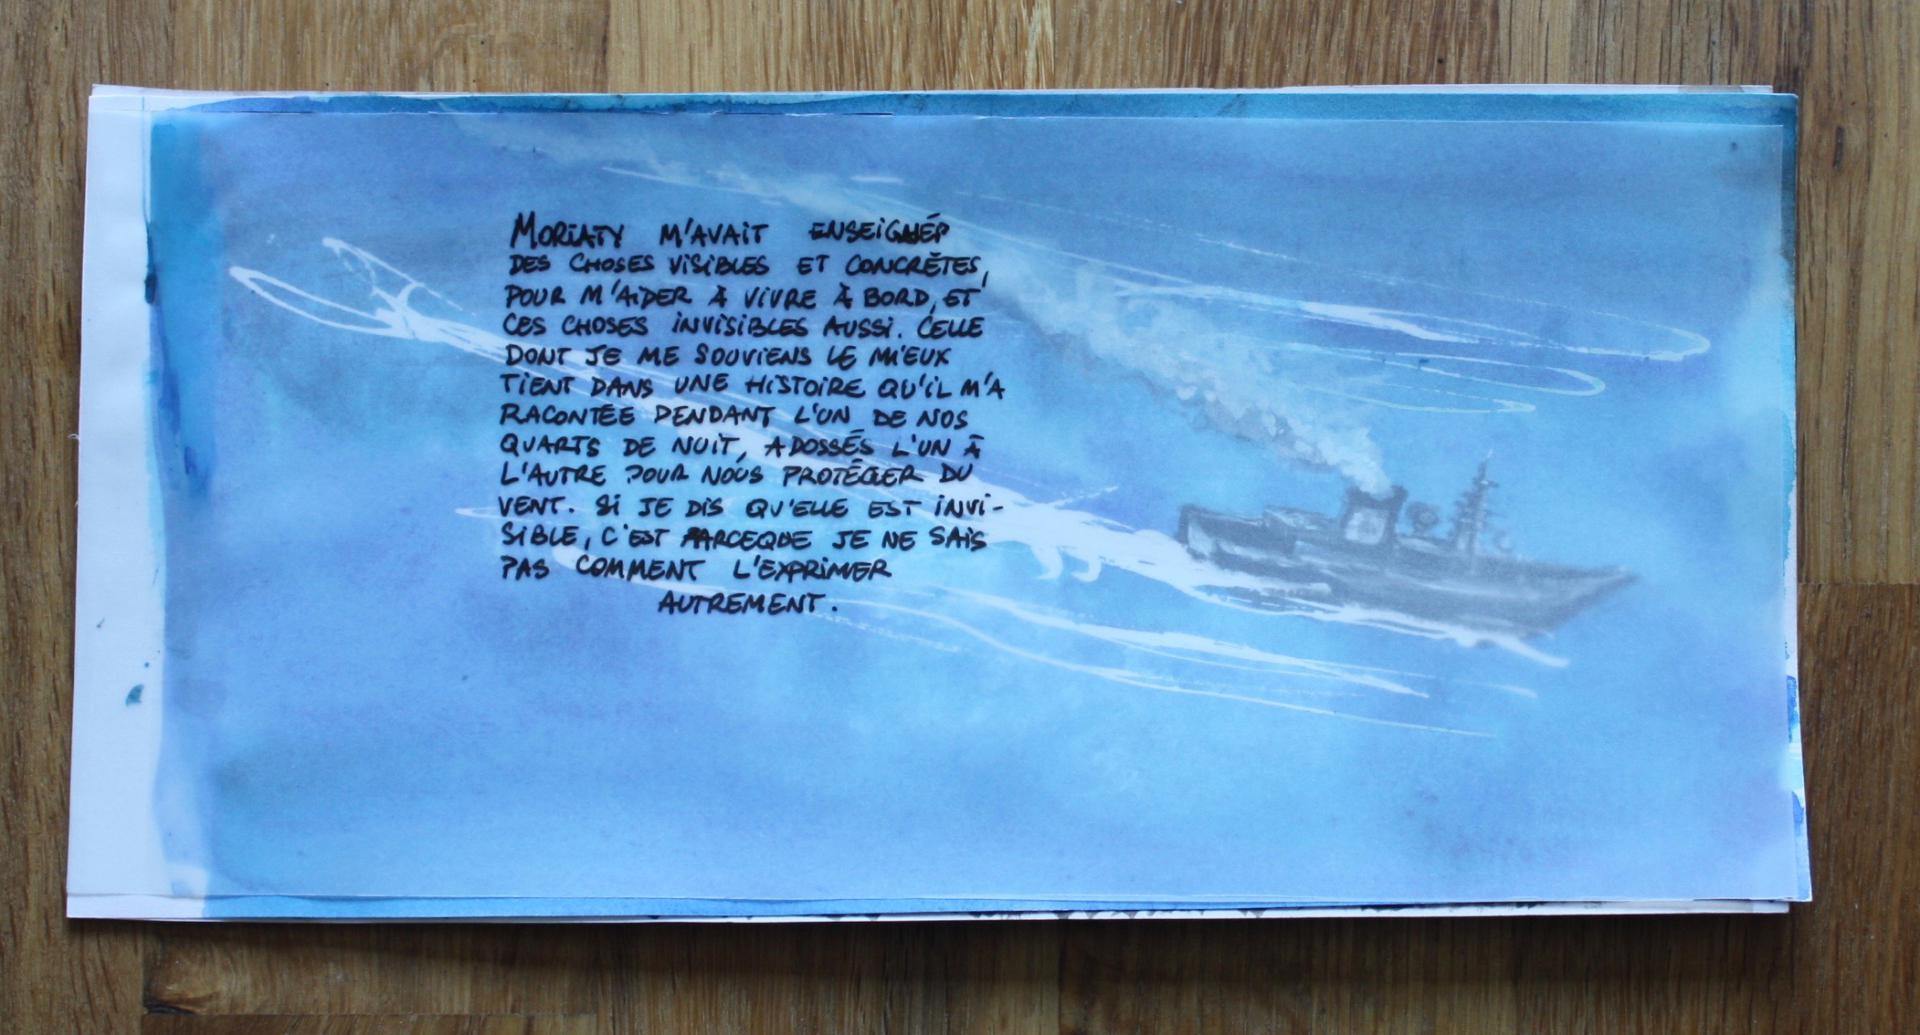 MORIATY M'AVAIT ENSEIGNÉ
DES CHOSES VISIBLES ET CONCRÈTES,
POUR M'AIDER À VIVRE À BORD, ET
CES CHOSES INVISIBLES AUSSI. CELLE
DONT JE ME SOUVIENS LE MIEUX
TIENT DANS UNE HISTOIRE QU'IL M'A
RACONTÉE PENDANT L'UN DE NOS
QUARTS DE NUIT, ADOSSÉS L'UN À
L'AUTRE POUR NOUS PROTÉGER DU
VENT. SI JE DIS QU'ELLE EST INVI-
SIBLE, C'EST PARCEQUE JE NE SAIS
PAS COMMENT L'EXPRIMER
AUTREMENT.